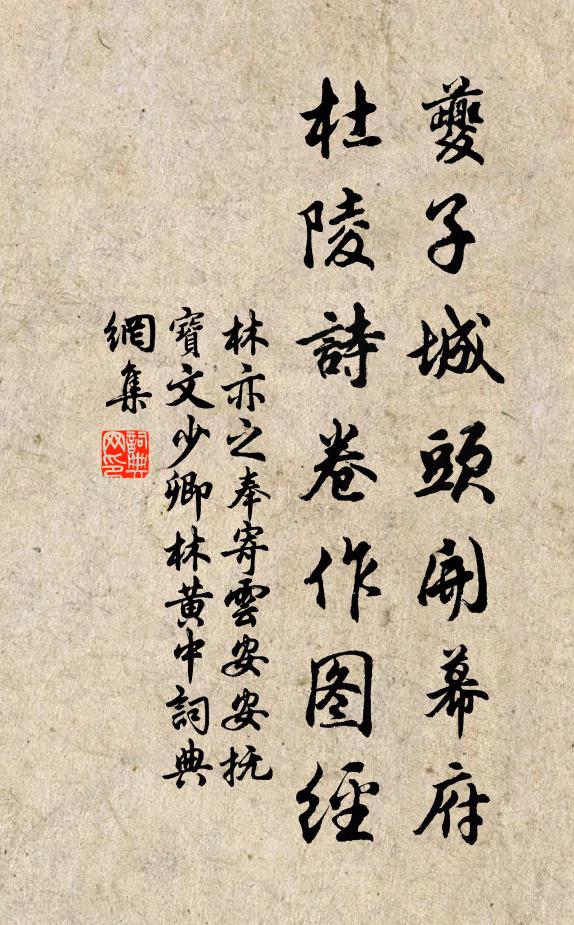 夔子城頭開幕府
杜陵詩卷作图經
林亦之奉寄雲安安抚
寶文少卿林黄中詞典
網集
詞典
网印